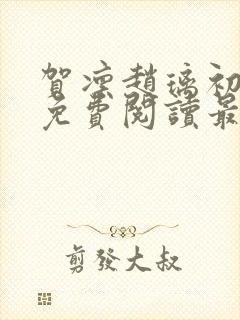 賀凛趙璃初
免費閱讀最
剪發大叔